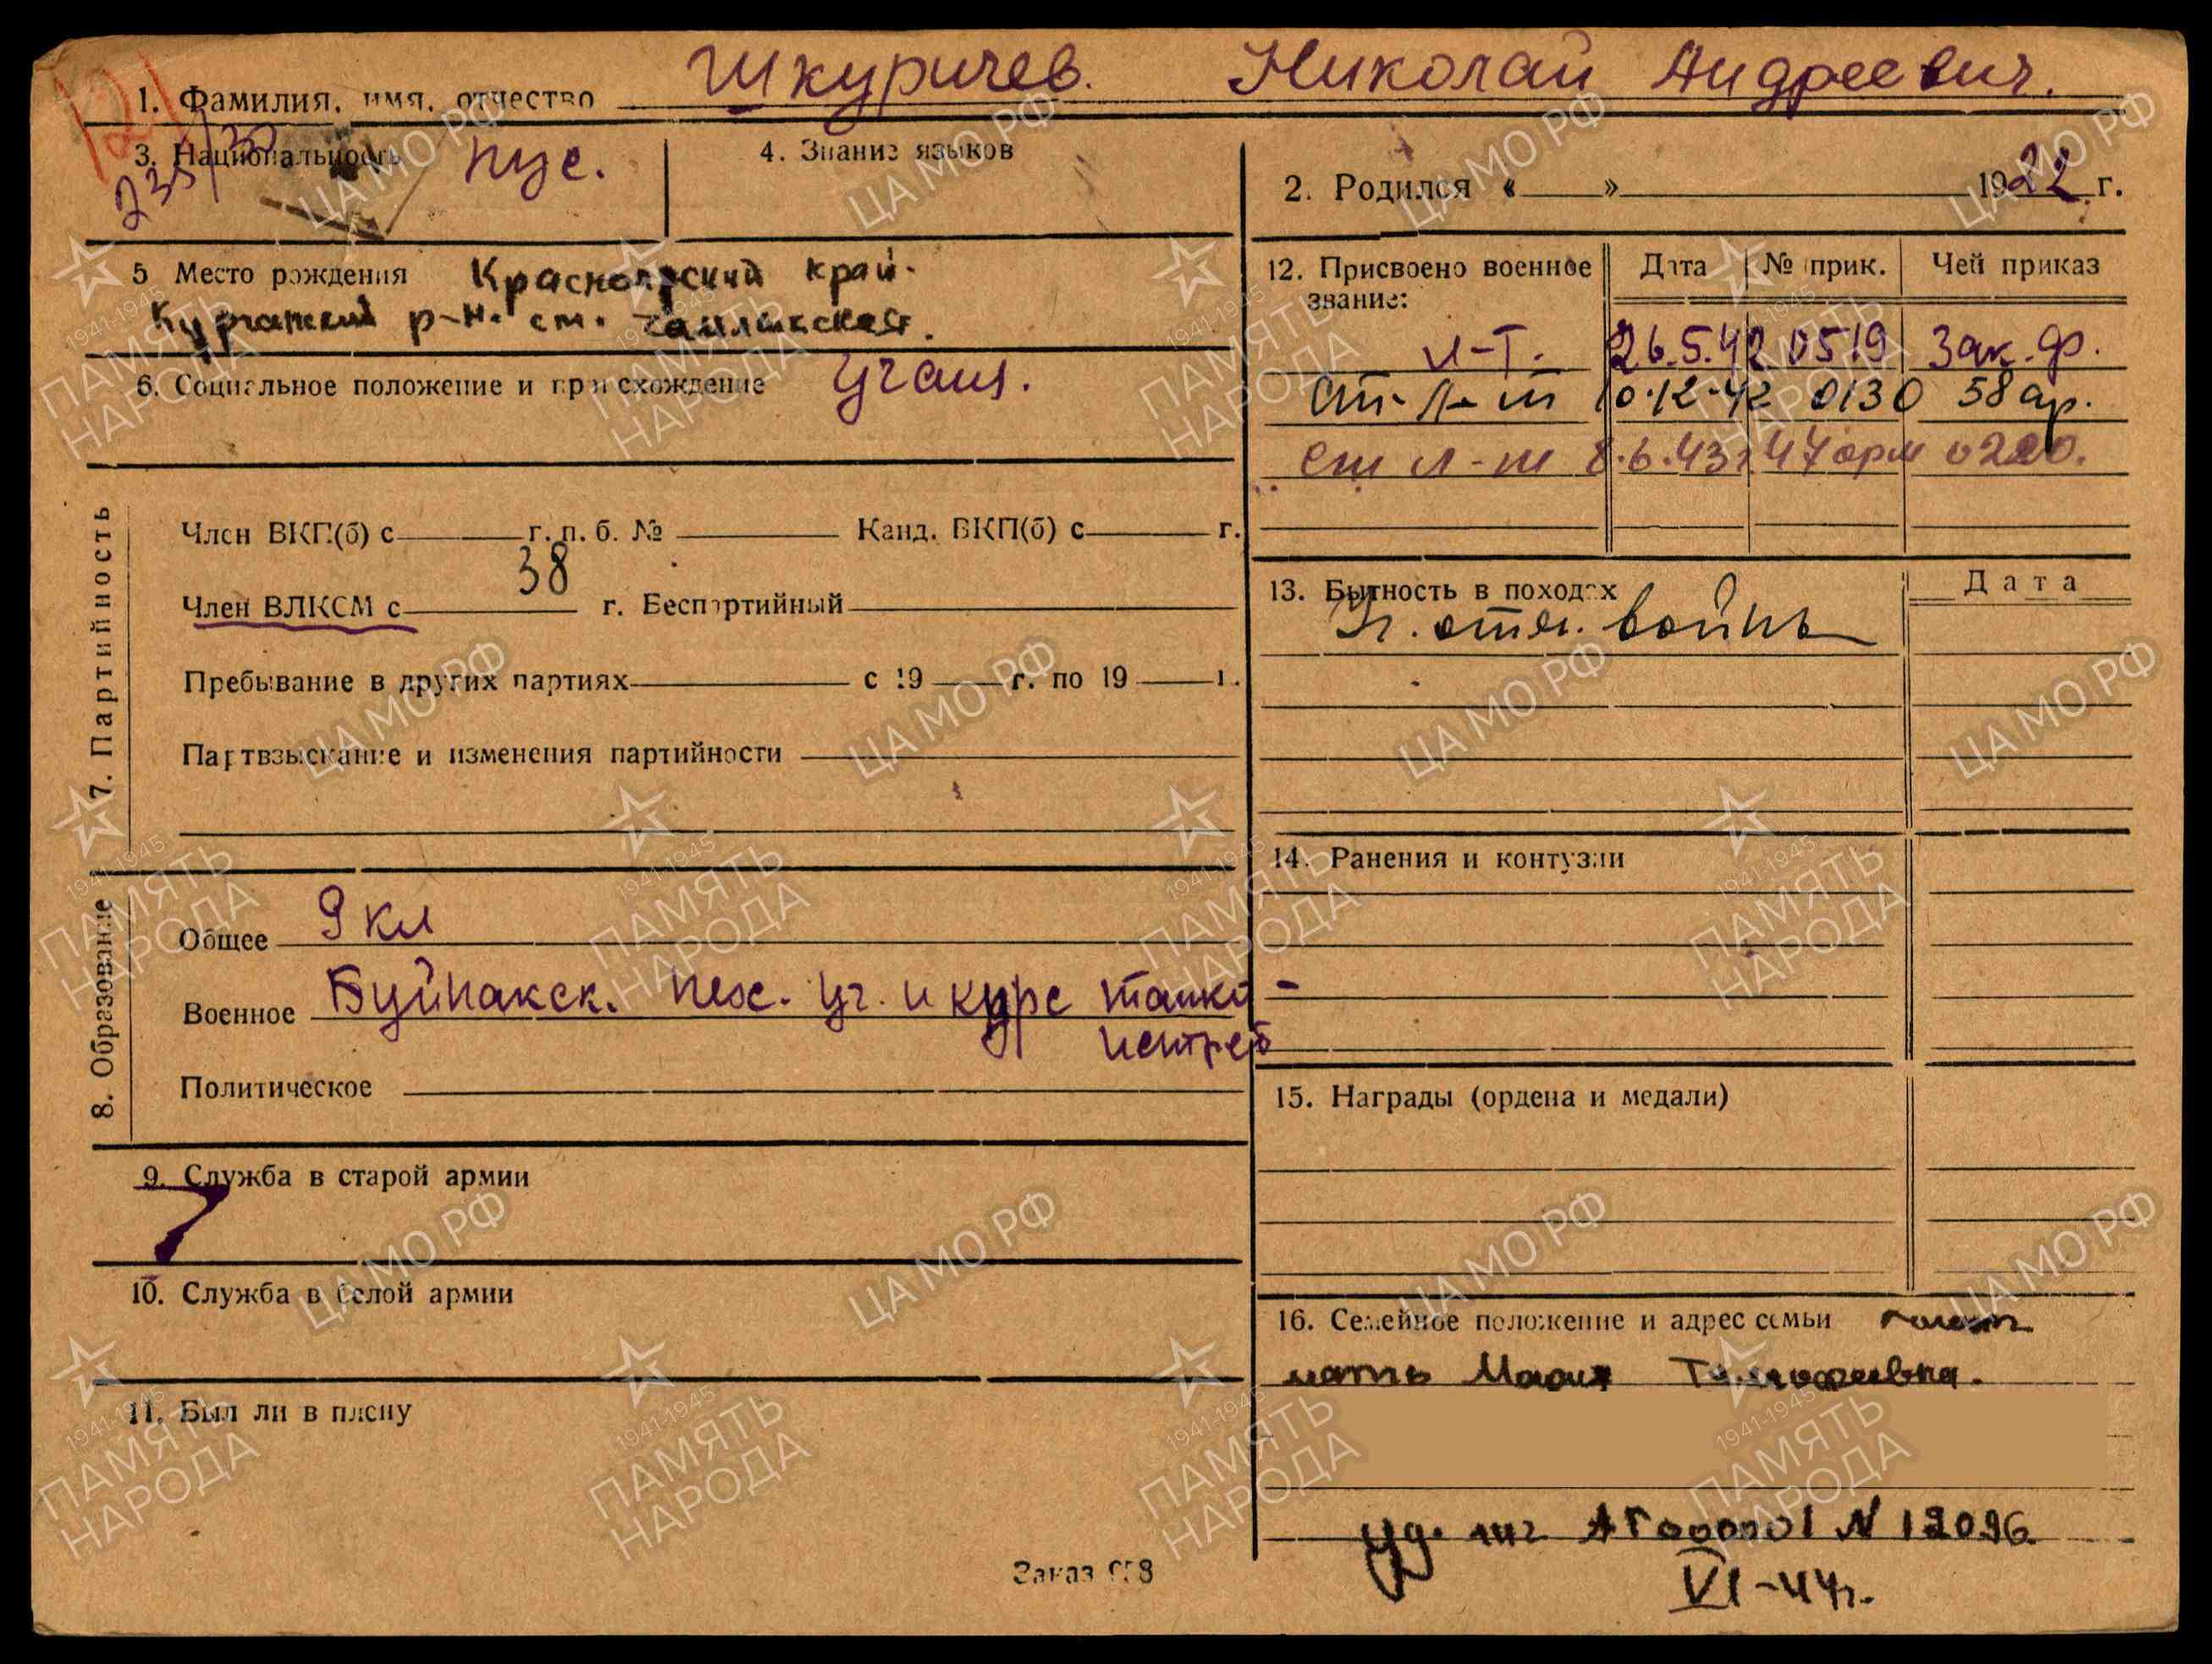 1. Фамилия, имя, отчество Шкуричев. Николай Андреевич.
235/30
3. Национальность рус.
4. Знание языков
2. Родился « » 1922 г.
5 Место рождения Красноярский край.
р-н. ст.
6. Социальное положение и происхождение учащ.
7. Партийность
Член ВКП(б) с г. п. б. № Канд. ВКП(б) с г.
Член ВЛКСМ с 38 г. Беспартийный
Пребывание в других партиях с 19 г. по 19 г.
Партвзыскание и изменения партийности
8. Образование
Общее 9 кл
Военное Буйнакск. пех. уч. и курс танко-
истреб
Политическое
9. Служба в старой армии
10. Служба в белой армии
11. Был ли в плену
Заказ
12. Присвоено военное звание: Дата № прик. Чей приказ
л-т. 26.5.42 0519 Зак. ф.
ст. л-т 10.12.42 0130 58 ар.
ст л-т 8.6.43г 47 арм 0220.
13. Бытность в походах Дата
Уч. отеч. войны
14. Ранения и контузии
15. Награды (ордена и медали)
16. Семейное положение и адрес семьи
мать Мария Тимофеевна.
уд. N 12096
VI-44г.
ЦА МО РФ
1941-1945
ПАМЯТЬ
НАРОДА